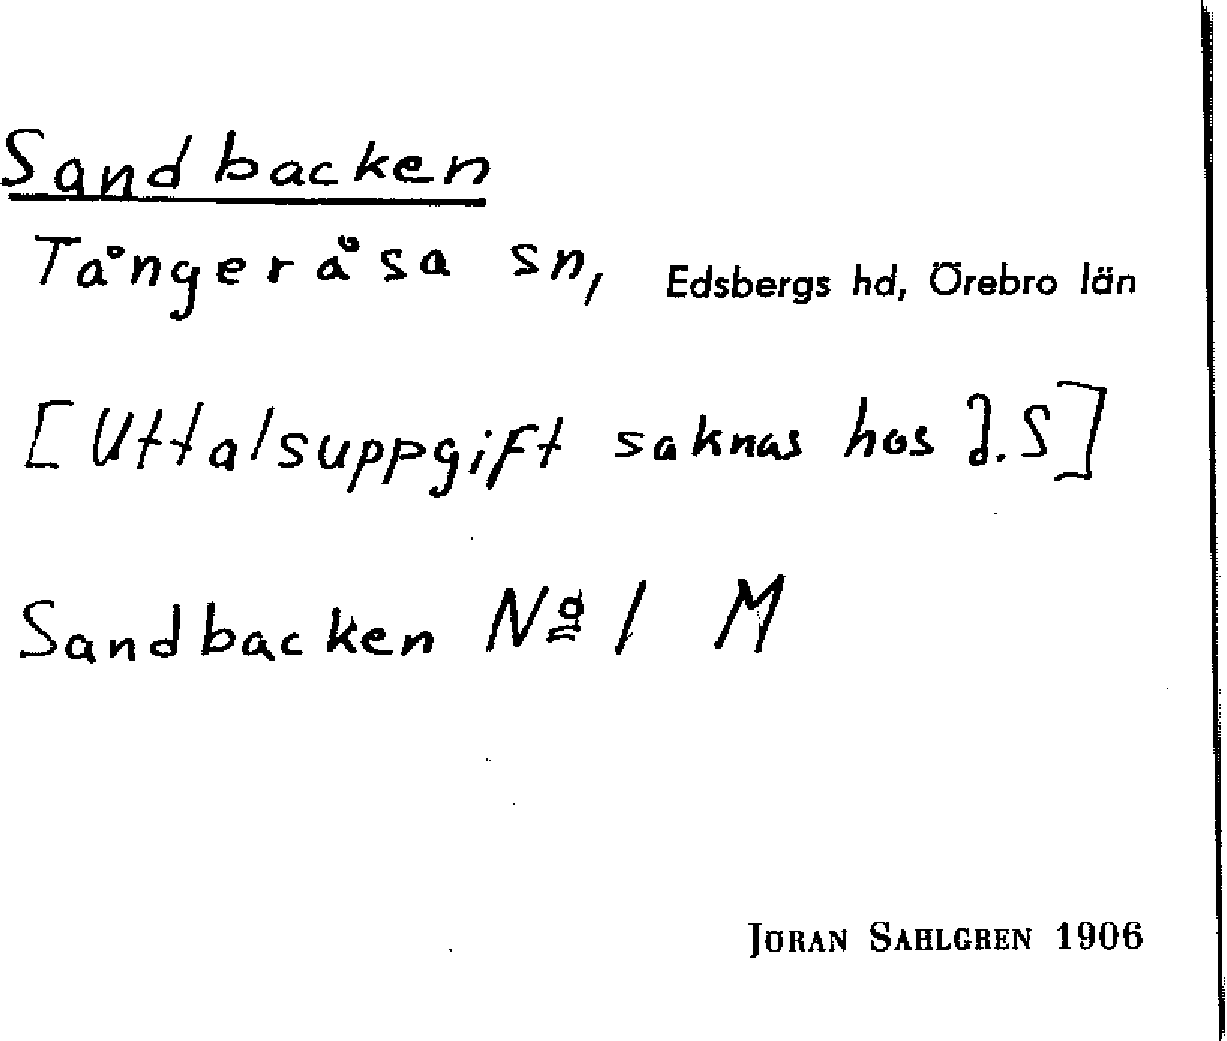 Sandbacken
Tångeråsa sn, Edsbergs hd, Örebro län
[Uttalsuppgift saknas hos J.S]
Sandbacken Nº 1 M
JÖRAN SAHLGREN 1906